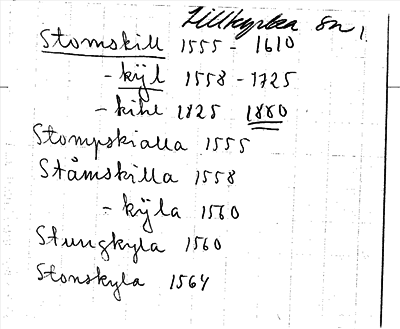 Tillkyrkea sn,
Stomskill 1555 - 1610
- kijl 1558 - 1725
- kihl 1825 1880
Stompskialla 1555
Ståmskilla 1558
- kijla 1560
Stungkyla 1560
Stonskyla 1564